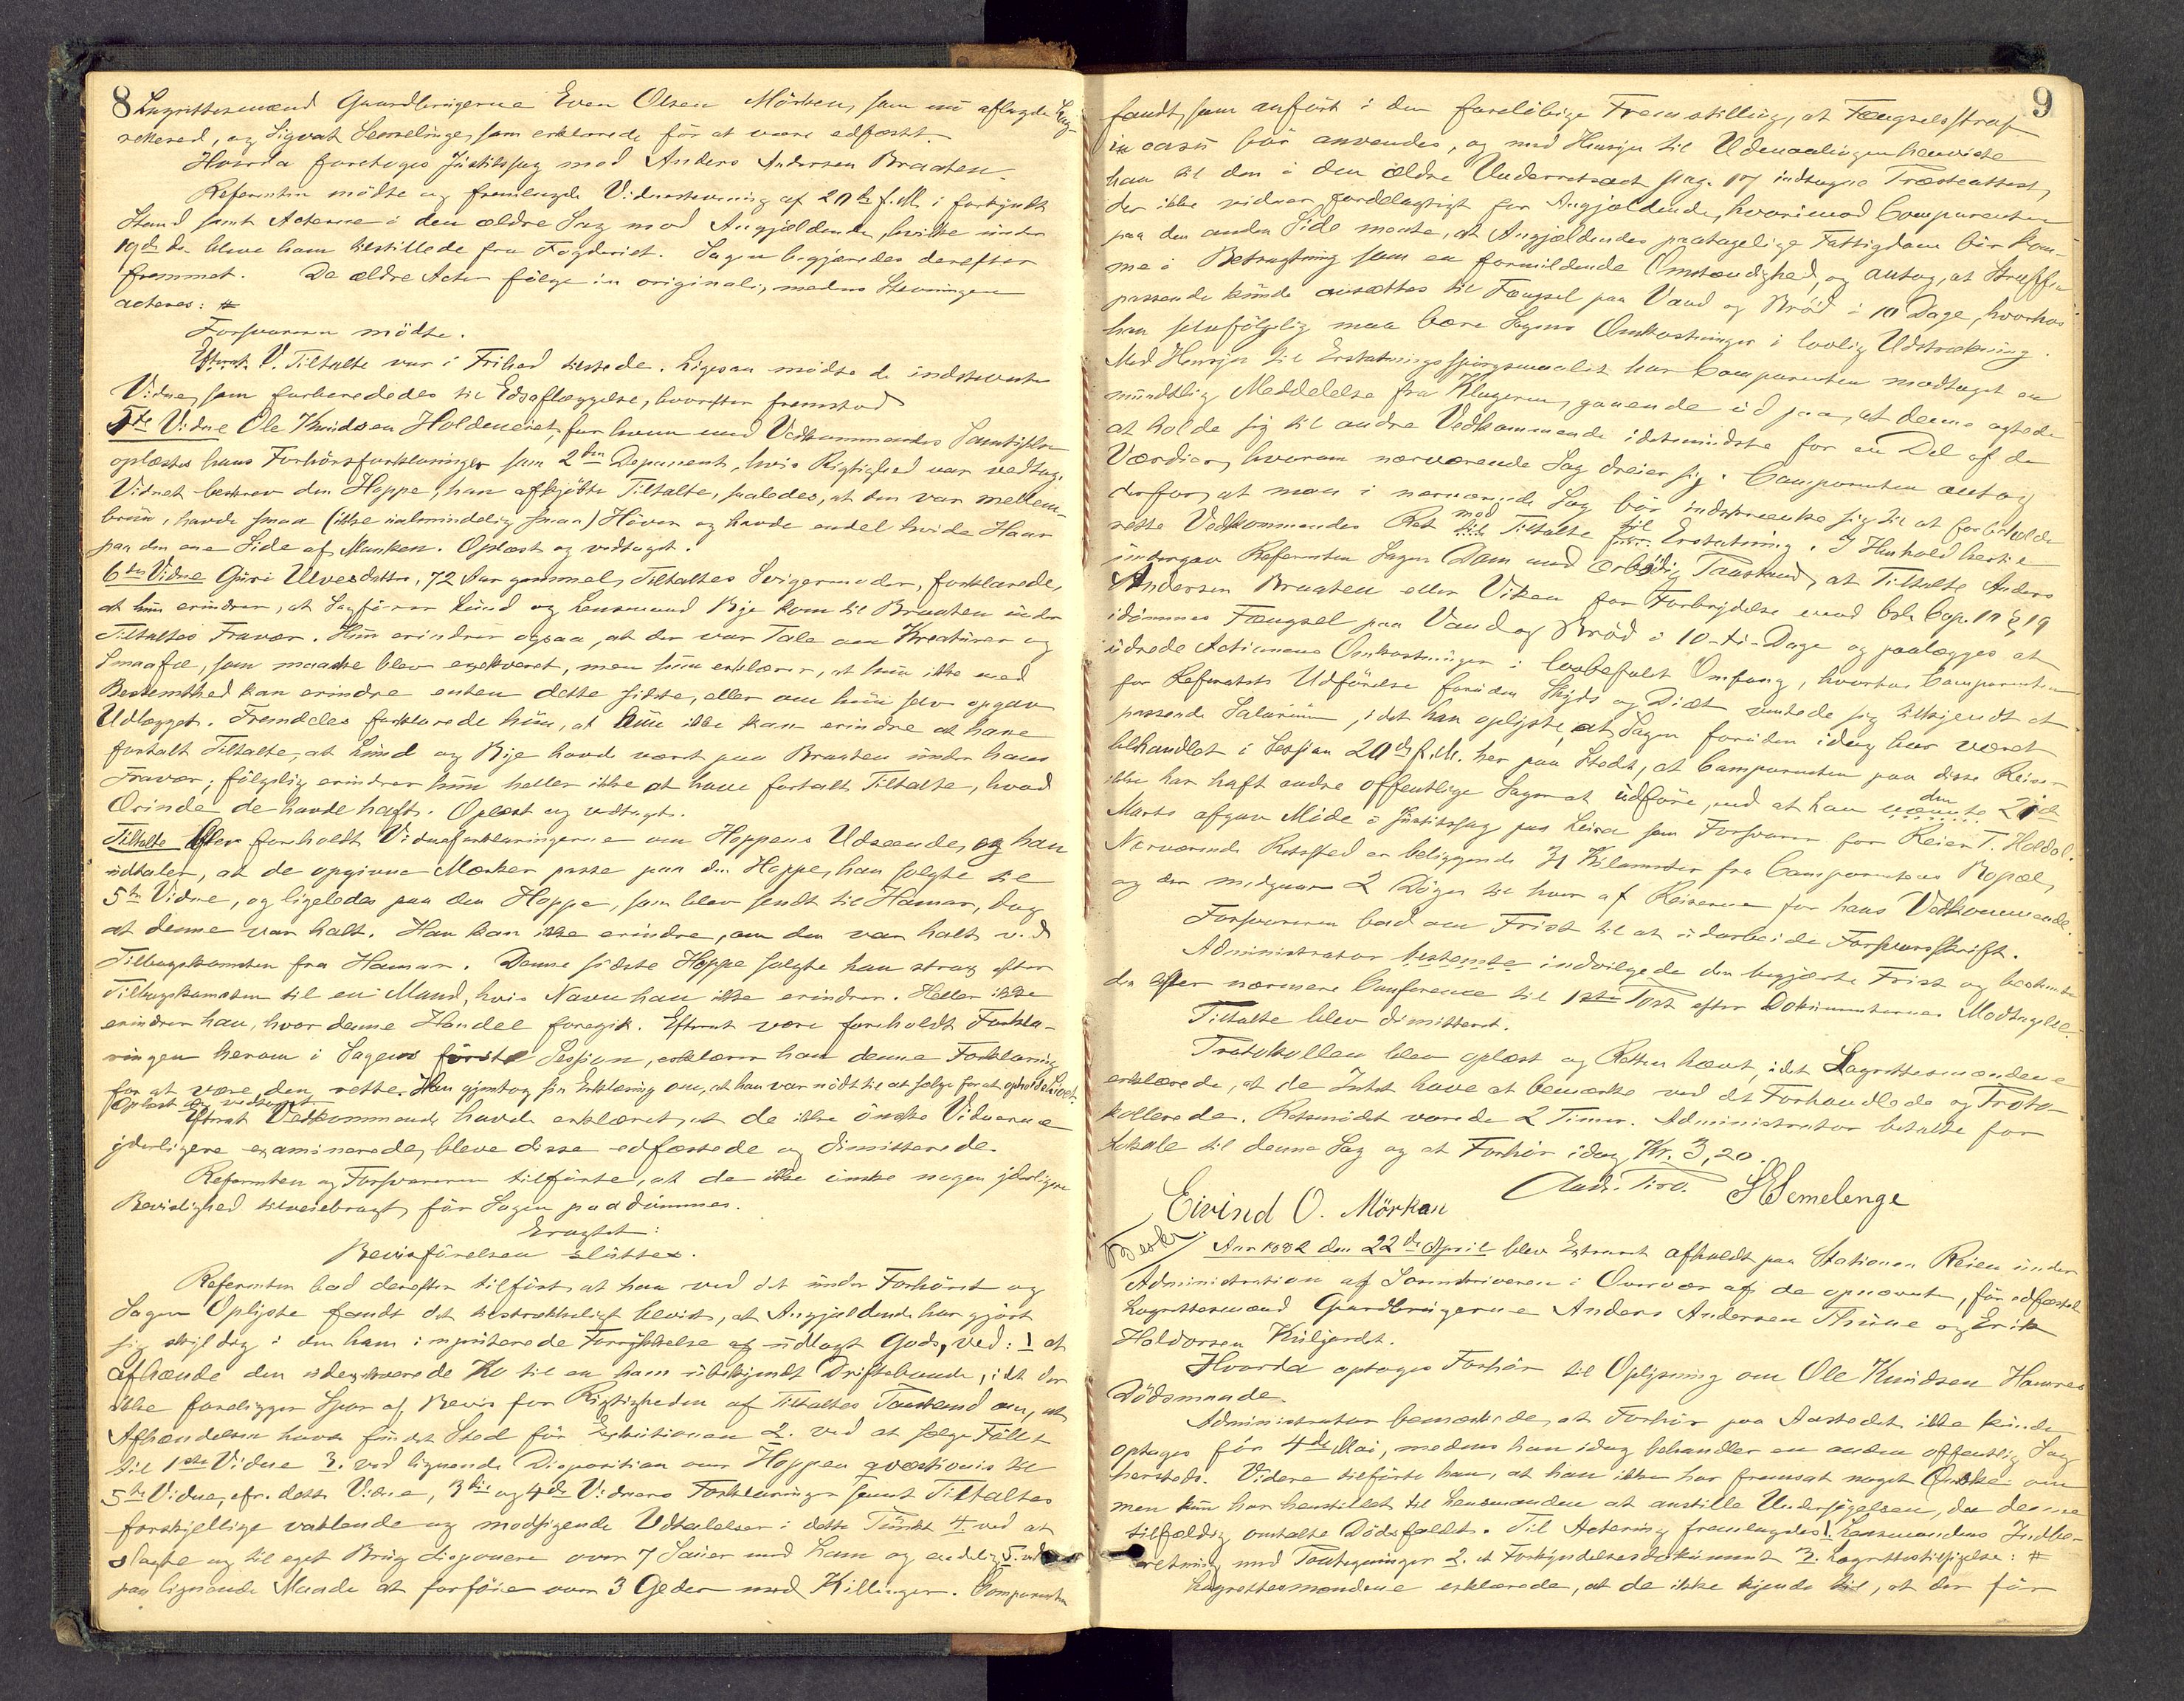 8 Lagrettesmænd Gaardbrugerne Even Olsen Mörken, som nu aflagde Lag-
retteed, og Sigvat Semelinge, som erklærede för at være edfæstet.
Hvorda foretoges Justitssag mod Anders Andersen Braaten.
Referenten mödte og fremlagde Vidnestevning af 20de f. M. i forkyndt
Stand samt Acterne i den ældre Sag mod Angjældende, hvilke under
19de ds. bleve ham tilstillede fra Fogderiet. Sagen begjæredes derefter
fremmet. De ældre Acter fölge in originali, medens Stevningen
acteres: #
Forsvareren mödte.
Tiltalte var i Frihed tilstede. Ligesaa mödte de indstevnte
Vidner, som forberededes til Edsaflæggelse, hvorefter fremstod
5te Vidne Ole Knudsen Holdeneiet, for hvem med Vedkommendes Samtykke
oplæstes hans Forhörsforklaringer som 2den Deponent, hvis Rigtighed var vedtag.
Vidnet beskrev den Hoppe, han afkjöbte Tiltalte, saaledes, at den var mellem-
brun, havde smaa (ikke ualmindelig smaa) Höver og havde endel hvide Haar
paa den ene Side af Manken. Oplæst og vedtaget.
6te Vidne Guri Ulvesdatter, 72 Aar gammel, Tiltaltes Svigermoder, forklarede,
at hun erindrer, at Sagförer Lund og Lensmand Bye kom til Braaten under
Tiltaltes Fravær. Hun erindrer ogsaa, at der var Tale om Kreaturer og
Smaafæ, som maatte blev exekveret, men hun erklærer, at hun ikke med
Bestemthed kan erindre enten dette sidste, eller om hun selv opgav
Udlægget. Fremdeles forklarede hun, at hun ikke kan erindre at have
fortalt Tiltalte, at Lund og Bye havde været paa Braaten under hans
Fravær; fölgelig erindrer hun heller ikke at have fortalt Tiltalte, hvad
Ærinde de havde haft. Oplæst og vedtaget.
Tiltalte blev foreholdt Vidneforklaringerne om Hoppens Udseende, og han
udtaler, at de opgivne Mærker passe paa den Hoppe, han solgte til
5te Vidne, og ligeledes paa den Hoppe, som blev sendt til Hamar, dog
at denne var halt. Han kan ikke erindre, om den var halt ved
Tilbagekomsten fra Hamar. Denne sidste Hoppe solgte han strax efter
Tilbagekomsten til en Mand, hvis Navn han ikke erindrer. Heller ikke
erindrer han, hvor denne Handel foregik. Efterat være foreholdt Forkla-
ringen herom i Sagens förste Session, erklærer han denne Forklaring
for at være den rette. Han gjentog sin Erklæring om, at han var nödt til at sælge for at opholde Livet.
Oplæst og vedtaget.
Efterat Vedkommende havde erklæret, at de ikke önske Vidnerne
yderligere examinerede, bleve disse edfæstede og dimitterede.
Referenten og Forsvareren tilförte, at de ikke önske nogen yderligere
Bevislighed tilveiebragt, för Sagen paadömmes.
Eragtet:
Bevisförelsen sluttes.
Referenten bad derefter tilfört, at han ved det under Forhöret og
Sagen Oplyste fandt det tilstrækkeligt bevist, at Angjældende har gjört
sig skyldig i den ham imputerede Forrykkelse af udlagt Gods, ved: 1 at
afhænde den udexekverede Ko til en ham ubekjendt Driftebonde, idet der
ikke foreligger Spor af Bevis for Rigtigheden af Tiltaltes Paastand om, at
Afhændelsen havde fundet Sted för Exekutionen 2. ved at sælge Föllet
til 1ste Vidne 3. ved lignende Disposition over Hoppen qvæstionis til
5te Vidne, cfr. dette Vidne, 3die og 4de Vidners Forklaringer samt Tiltaltes
forskjellige vaklende og modsigende Udtalelser i dette Punkt 4. ved at
slagte og til eget Brug disponere over 7 Sauer med Lam og endelig 5. ved
paa lignende Maade at forföie over 3 Geder med Killinger. Comparenten
9
fandt, som anfört i den foreløbige Fremstilling, at Fængselsstraf
in casu bör anvendes, og med Hensyn til Udmaalingen henviste
han til den i den ældre Underretsact pag. 17 indtagne Præsteattest,
der ikke vidner fordelagtigt for Angjældende, hvorimod Comparenten
paa den anden Side mente, at Angjældendes paatagelige Fattigdom bör kom-
me i Betragtning som en formildende Omstændighed, og antog, at Straffen
passende kunde ansættes til Fængsel paa Vand og Bröd i 10 Dage, hvorhos
han selvfölgelig maa bære Sagens Omkostninger i lovlig Udstrækning.
Med Hensyn til Erstatningsspörgsmaalet har Comparenten modtaget en
mundtlig Meddelelse fra Klageren, gaaende ud paa, at denne agtede
at holde sig til andre Vedkommende idetmindste for en Del af de
Værdier, hvorom nærværende Sag dreier sig. Comparenten antog
derfor, at man i nærværende Sag bör indskrænke sig til at forbeholde
rette Vedkommende Ret mod Tiltalte til Erstatning. I Henhold hertil
undergav Referenten Sagen Dom med ærbödig Paastand, at Tiltalte Anders
Andersen Braaten eller Viken for Forbrydelse mod Crl. Cap. 10 § 19
idömmes Fængsel paa Vand og Bröd i 10-ti-Dage og paalægges at
udrede Actionens Omkostninger i lovbefalet Omfang, hvorhos Comparenten
for Referatets Udförelse foruden Skyds og Diæt ventede sig tilkjendt et
passende Salarium, idet han oplyste, at Sagen foruden idag har været
behandlet i Session 20de f. M. her paa Stedet, at Comparenten paa disse Reiser
ikke har haft andre offentlige Sager at udföre, end at han den 21de
Marts afgav Möde i Justitssag paa Leira som Forsvarer for Reier T. Holdal.
Nærværende Retssted er beliggende 31 Kilometer fra Comparentens Bopæl,
og der medgaar 2 Döger til hver af Reiserne for hans Vedkommende.
Forsvareren bad om Frist til at udarbeide Forsvarsskrift.
Administrator bestemte indvilgede den begjærte Frist og bestemte
den efter nærmere Conference til 1ste Post efter Dokumenternes Modtagelse.
Tiltalte blev dimitteret.
Protokollen blev oplæst og Retten hævet, idet Lagrettesmændene
erklærede, at de Intet have at bemærke ved det Forhandlede og Proto-
kollerede. Retsmödet varede 2 Timer. Administrator betalte for
Lokale til denne Sag og et Forhör idag Kr. 3,20.
Eivind O. Mörken SESemelenge
Beskr.
Aar 1882 den 22de April blev Extraret afholdt paa Stationen Reien under
Administration af Sorenskriveren i Overvær af de opnævnte, för edfæstede
Lagrettesmænd Gaardbrugerne Anders Andersen Thune og Erik
Holdorsen Kuljordt.
Hvorda optoges Forhör til Oplysning om Ole Knudsen Hamres
Dödsmaade.
Administrator bemærkede, at Forhör paa Aastedet ikke kunde
optages för 4de Mai, medens han idag behandler en anden offentlig Sag
hersteds. Videre tilförte han, at han ikke har fremsat noget Önske om
men kun har henstillet til Lensmanden at anstille Undersögelsen, da denne
tilfældig omtalte Dödsfaldet. Til Actering fremlagdes 1. Lensmandens Indbe-
retning med Paategninger 2. et Forkyndelsesdokument 3. Lagrettestilsigelse: #
Lagrettesmændene erklærede, at de ikke kjende til, at der för